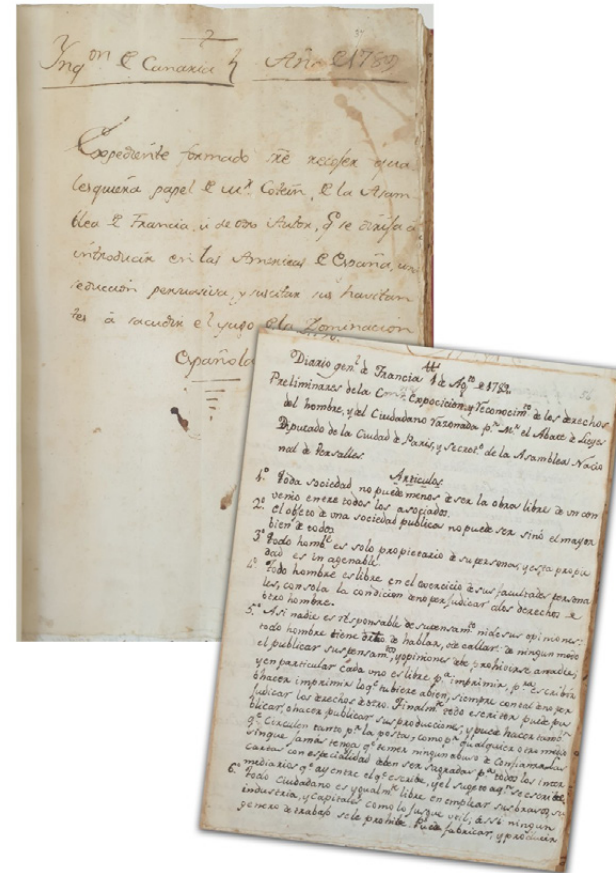 Ynq.on de Canaria Año de 1789
Expediente formado sre recojer qua
lesquiera papel de mr. Cotein, de la Asam
blea de Francia, u de otro Autor, q se dirija a
introducir en las Americas de España, una
seduccion persuasiva, y suscitar sus havitan
tes à sacudir el yugo de la Dominacion
Española
Diario gen.l de Francia 1 de Ag.to de 1789
Preliminares de la Exposicion, y reconocim.to de los derechos
del hombre, y del Ciudadano razonada p.r Mr. el Abate de Sieyes
Diputado de la Ciudad de Paris, y Secret.o de la Asamblea Nacio
nal de Versalles.
Articulos.
1.º Toda sociedad no puede menos de ser la obra libre de un con
venio entre todos los asociados.
2.º El objeto de una sociedad publica no puede ser sinó el mayor
bien de todos.
3.º Todo hombe es solo propietario de su persona, y esta propie
dad es in agenable.
4.º Todo hombre es libre en el exercicio de sus facultades persona
les, con sola la condicion de no perjudicar a los derechos de
otro hombre.
5.º Asi nadie es responsable de su pensam.to ni de sus opiniones:
todo hombre tiene dro de hablar, o de callar: de ningun modo
el publicar sus pensam.tos, y opiniones debe prohibirse a nadie,
y en particular cada uno es libre p.a imprimir, p.a escribir
ò hacer imprimir lo q.e tubiere a bien, siempre con tal de no per
judicar los derechos de otro. Finalm.te todo escritor puede pu
blicar, ò hacer publicar sus producciones, y puede hacer tamb.n
q.e circulen tanto p.r la posta, como p.r qualquier otro medio
sin que jamás tenga q.e temer ningun abuso de confianza. Las
cartas con especialidad deben ser sagradas p.a todos los inter
mediarios q.e ay entre el q.e escribe, y el sugeto a q.n se escribe.
6.º Todo ciudadano es ygualm.te libre en emplear sus brazos, su
industria, y capitales como lo juzgue util, a si ningun
genero de trabajo se le prohibe. Puede fabricar, y producir